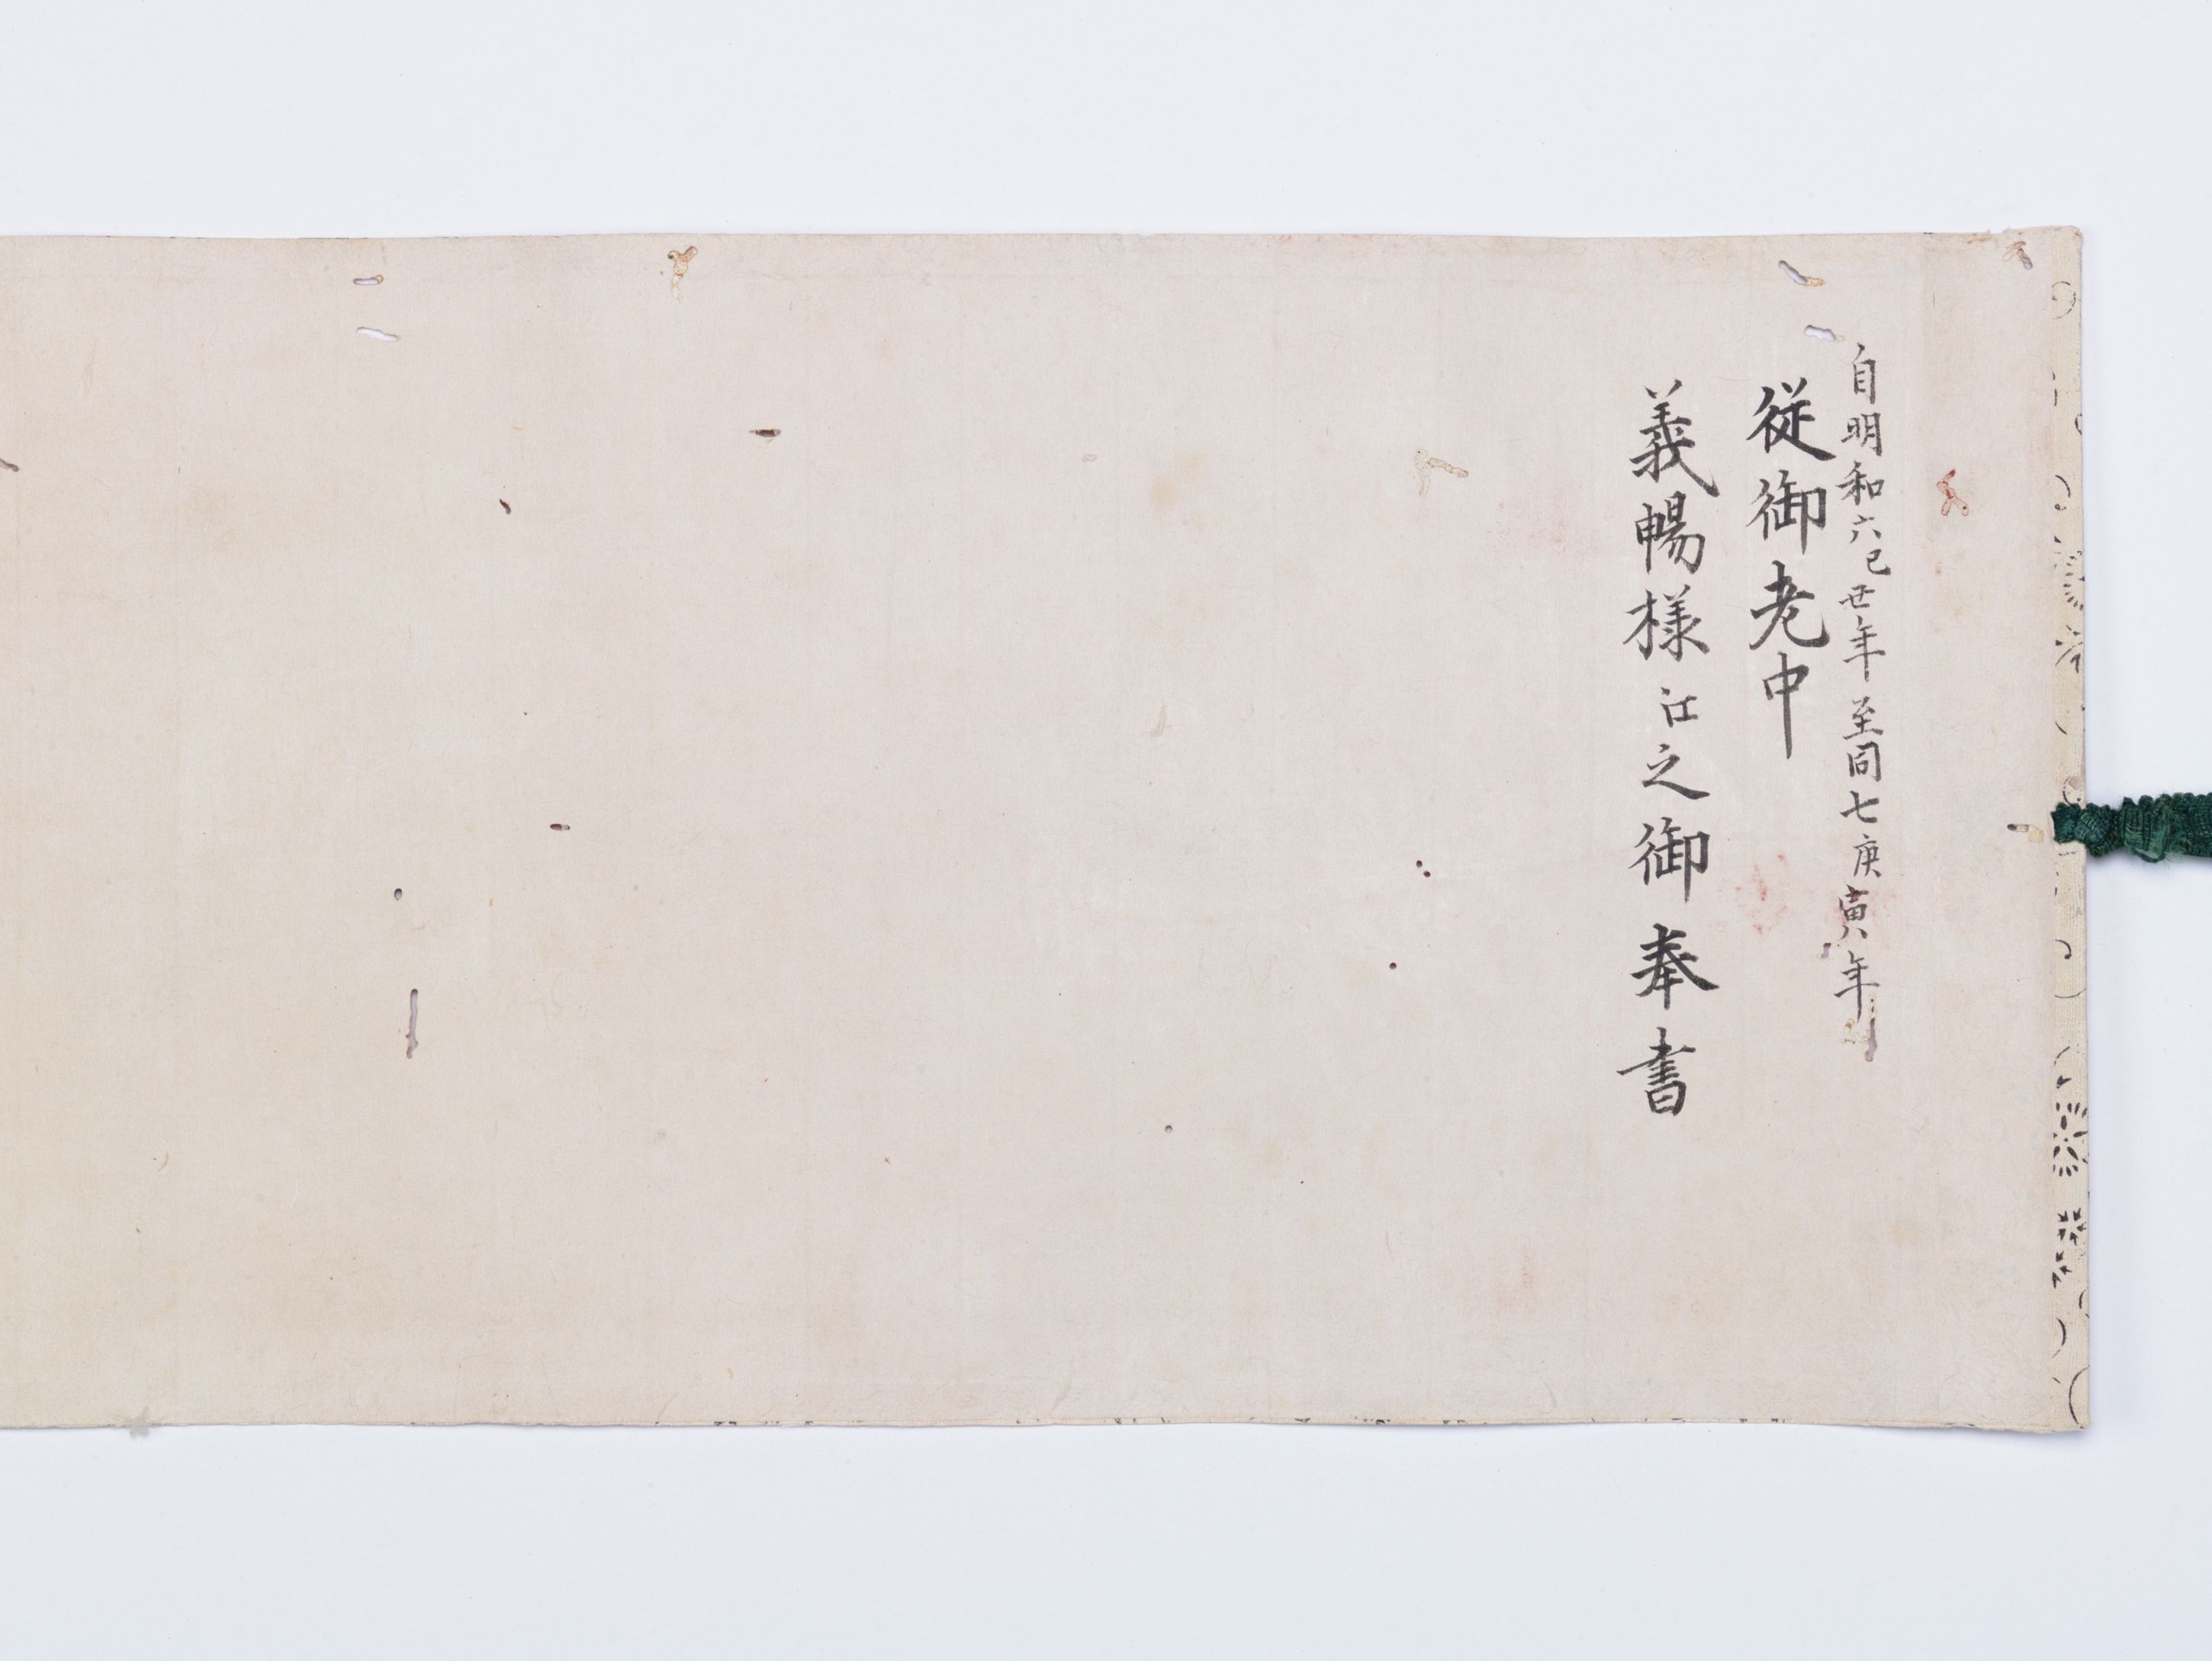 自明和六己丑年至同七庚寅年
従御老中
義暢様江之御奉書